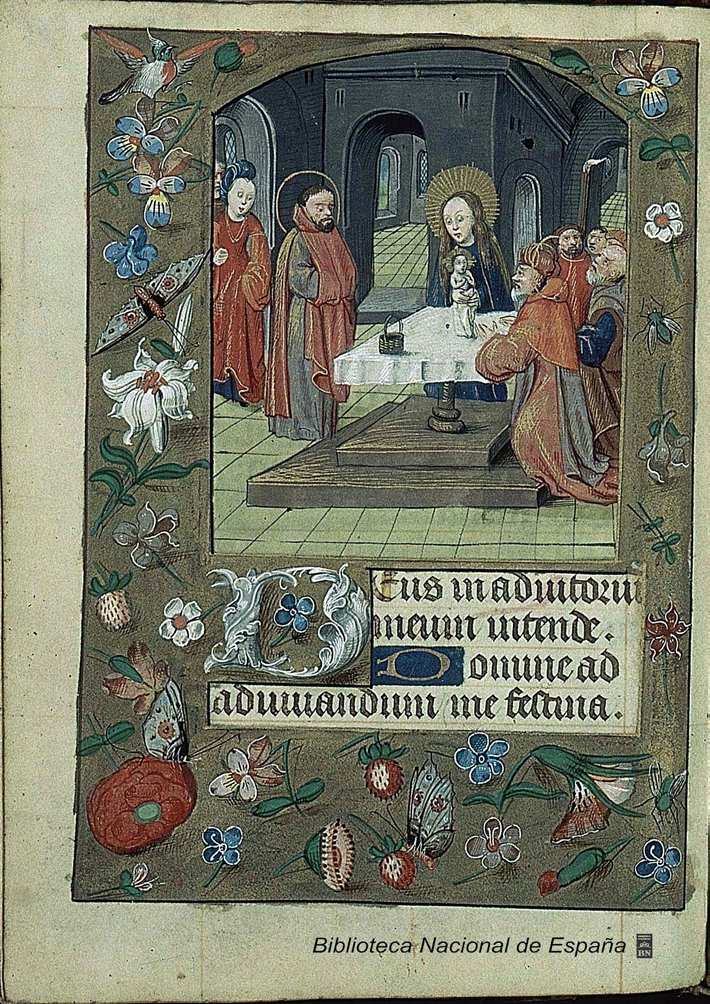 Deus in adiutoriu
meum intende.
Domine ad
adiuuandum me festina.
Biblioteca Nacional de España
BN